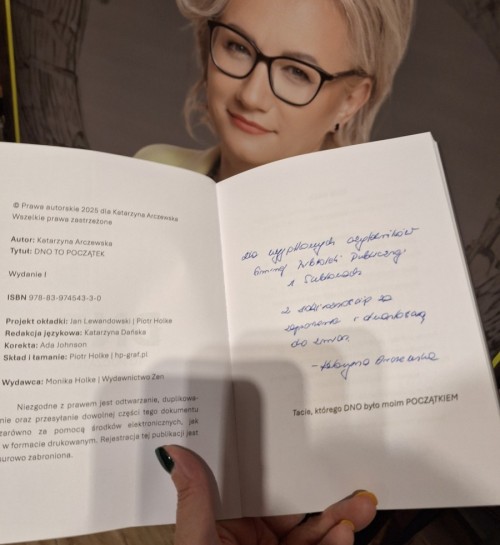 © Prawa autorskie 2025 dla Katarzyna Arczewska
Wszelkie prawa zastrzeżone
Autor: Katarzyna Arczewska
Tytuł: DNO TO POCZĄTEK
Wydanie I
ISBN 978-83-974543-3-0
Projekt okładki: Jan Lewandowski | Piotr Holke
Redakcja językowa: Katarzyna Dańska
Korekta: Ada Johnson
Skład i łamanie: Piotr Holke | hp-graf.pl
Wydawca: Monika Holke | Wydawnictwo Zen
Niezgodne z prawem jest odtwarzanie, duplikowa-
nie oraz przesyłanie dowolnej części tego dokumentu
zarówno za pomocą środków elektronicznych, jak
w formacie drukowanym. Rejestracja tej publikacji jest
surowo zabroniona.
Dla wyjątkowych czytelników
Gminnej Biblioteki Publicznej
w
z za
zaproszenie i
do zmian
- Katarzyna Arczewska
Tacie, którego DNO było moim POCZĄTKIEM